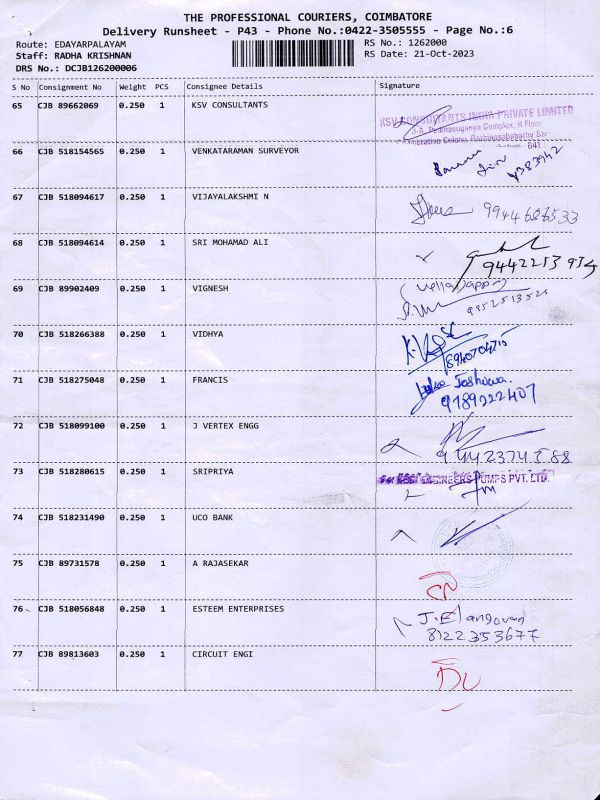 THE PROFESSIONAL COURIERS, COIMBATORE
Delivery Runsheet - P43 - Phone No.:0422-3505555 - Page No.:6
Route: EDAYARPALAYAM
Staff: RADHA KRISHNAN
DRS No.: DCJB126200006
RS No.: 1262000
RS Date: 21-Oct-2023
S No Consignment No Weight PCS Consignee Details Signature
65 CJB 89662069 0.250 1 KSV CONSULTANTS
KSV CONSULTANTS INDIA PRIVATE LIMITED
Complex, II Floor
641
66 CJB 518154565 0.250 1 VENKATARAMAN SURVEYOR
67 CJB 518094617 0.250 1 VIJAYALAKSHMI N
68 CJB 518094614 0.250 1 SRI MOHAMAD ALI
69 CJB 89902409 0.250 1 VIGNESH
9952513521
70 CJB 518266388 0.250 1 VIDHYA
71 CJB 518275048 0.250 1 FRANCIS
Joshuwa.
9789222407
72 CJB 518099100 0.250 1 J VERTEX ENGG
9442374588
73 CJB 518280615 0.250 1 SRIPRIYA
ENGINEERS PUMPS PVT. LTD.
74 CJB 518231490 0.250 1 UCO BANK
75 CJB 89731578 0.250 1 A RAJASEKAR
76 CJB 518056848 0.250 1 ESTEEM ENTERPRISES
J. Elangovan
8122353677
77 CJB 89813603 0.250 1 CIRCUIT ENGI